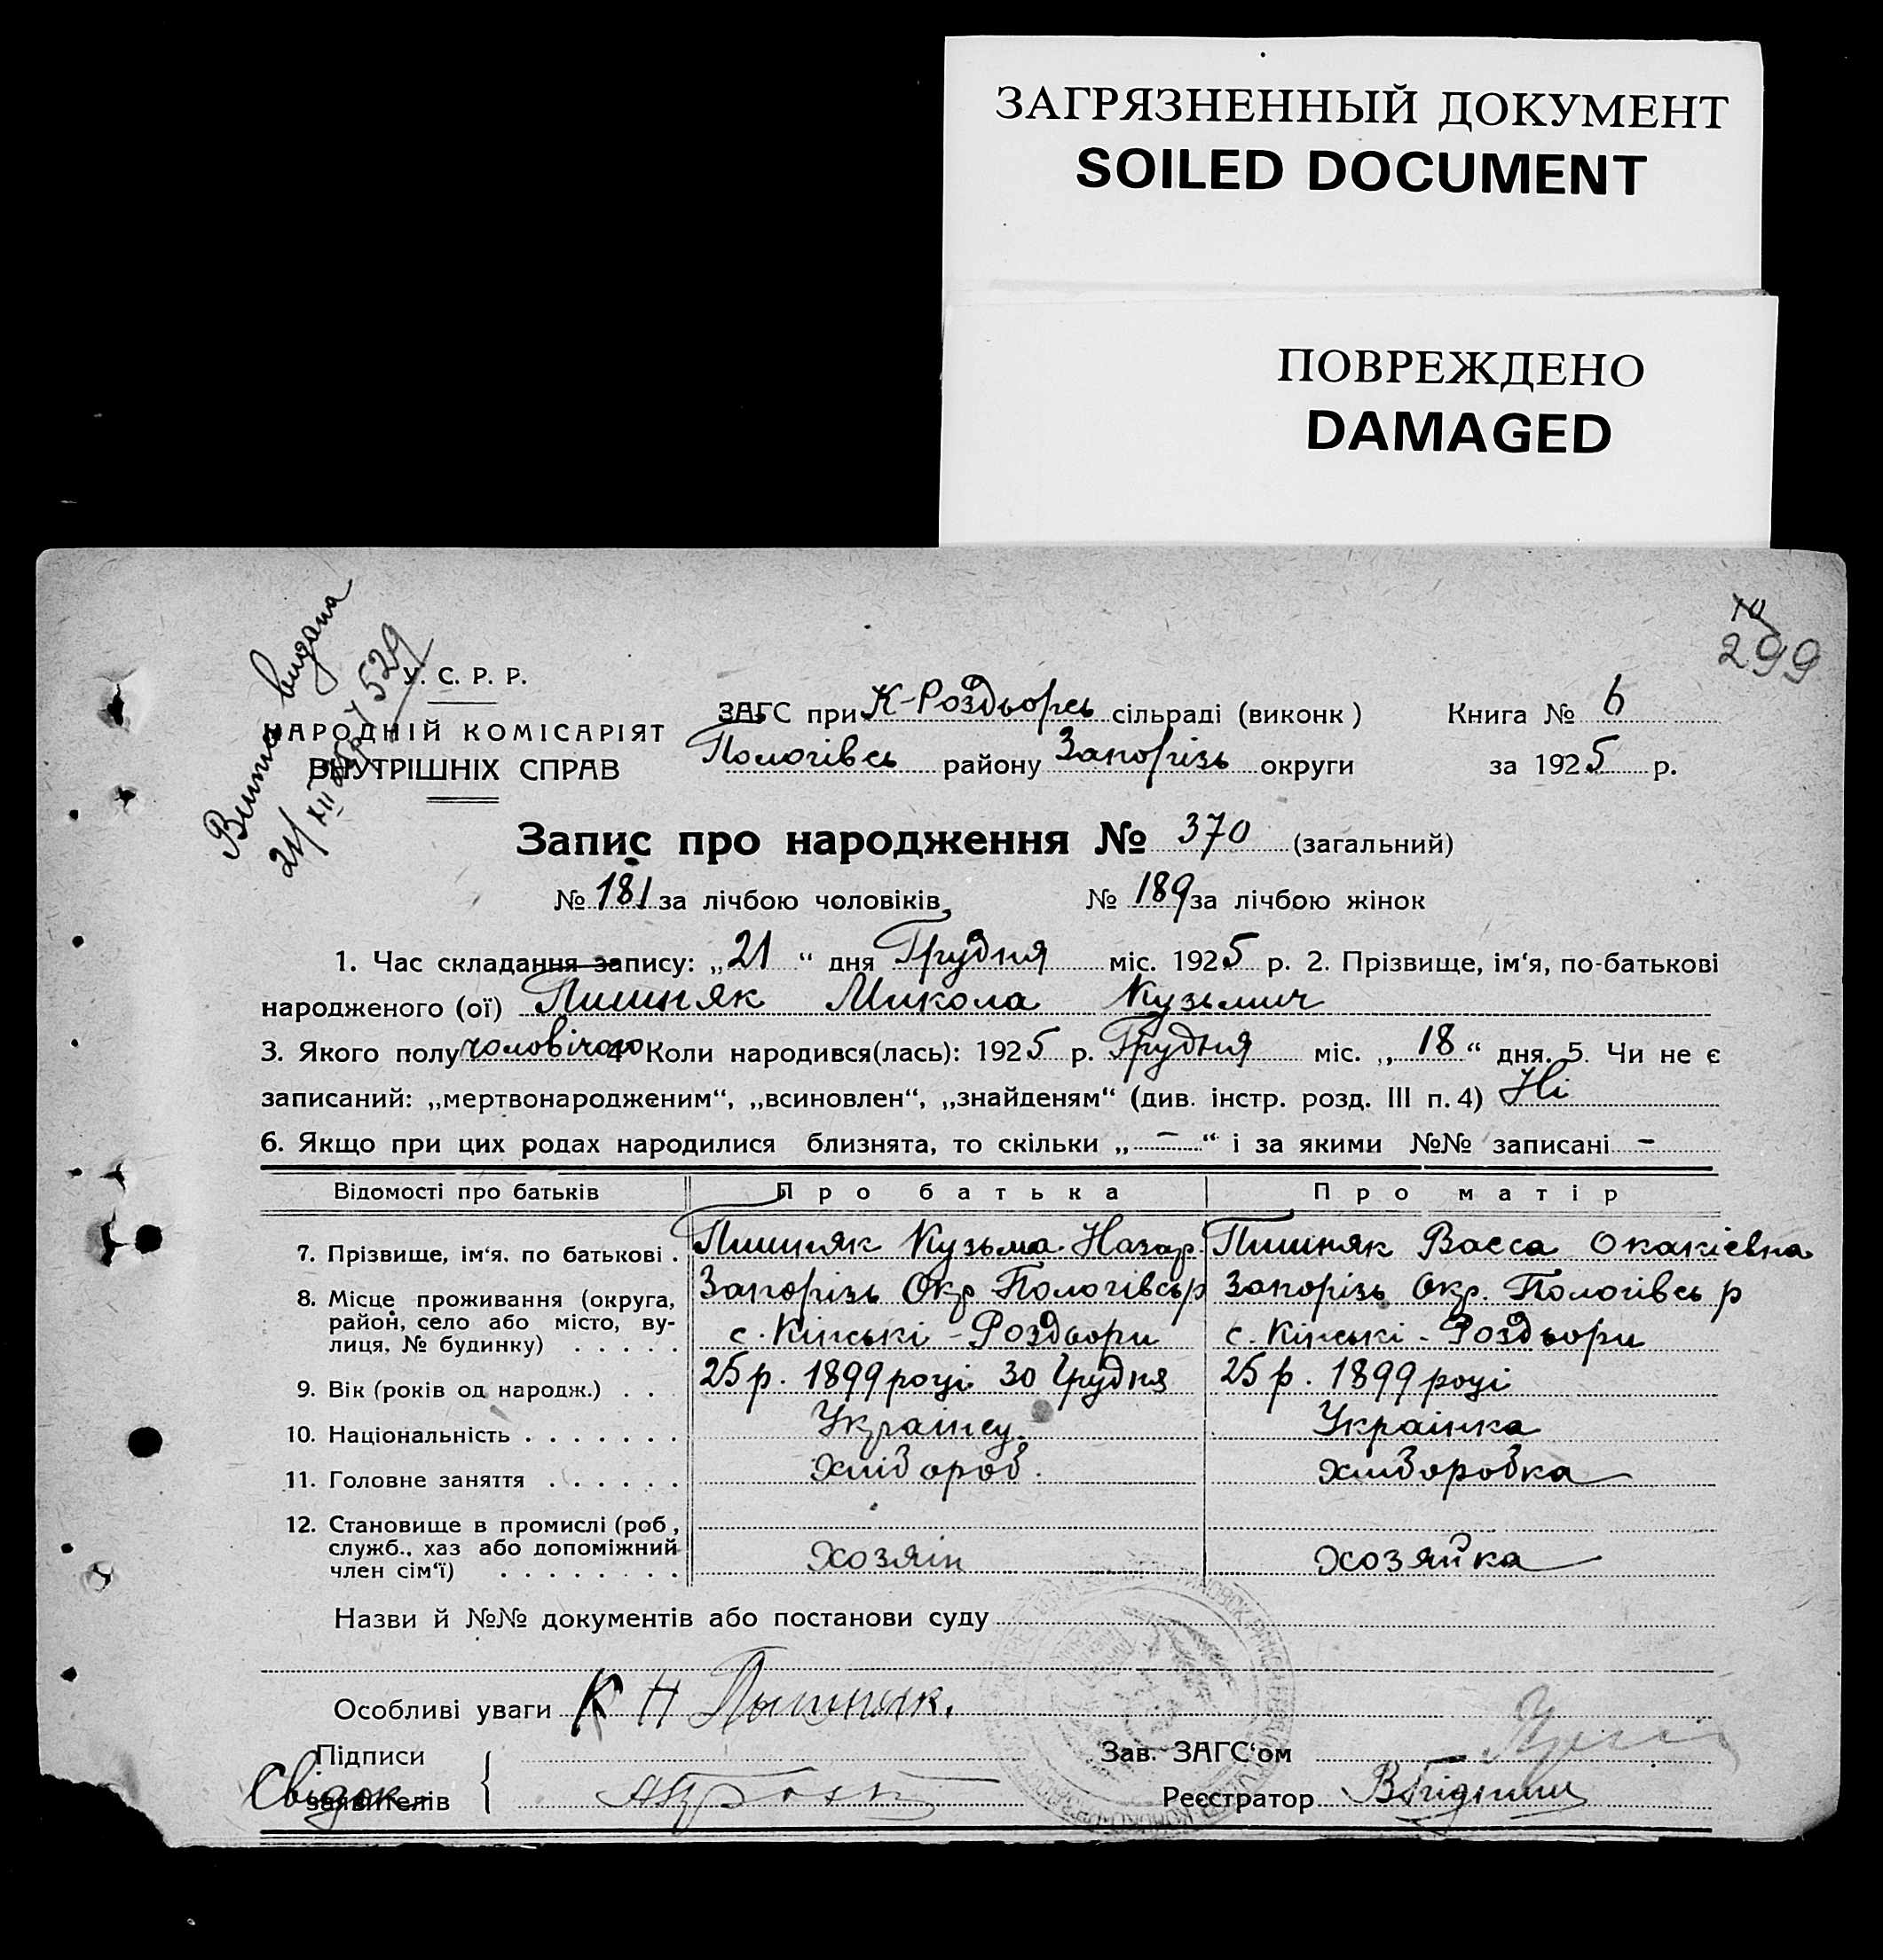 ЗАГРЯЗНЕННЫЙ ДОКУМЕНТ
SOILED DOCUMENT
ПОВРЕЖДЕНО
DAMAGED
299
видана
529
У. С. Р. Р.
НАРОДНІЙ КОМІСАРІЯТ
ВНУТРІШНІХ СПРАВ
ЗАГС при К-Роздорсь сільраді (виконк)
Книга № 6
Пологівсь району Запорізь округи
за 1925 р.
Запис про народження № 370 (загальний)
№ 181 за лічбою чоловіків, № 189 за лічбою жінок
1. Час складання запису: „21“ дня Грудня міс. 1925 р. 2. Прізвище, ім‘я, по-батькові
народженого (ої) Пишняк Микола Кузьмич
3. Якого полу чоловічого 4 Коли народився(лась): 1925 р. Грудня міс. „18“ дня. 5. Чи не є
записаний: „мертвонародженим“, „всиновлен“, „знайденям“ (див. інстр. розд. III п. 4) Ні
6. Якщо при цих родах народилися близнята, то скільки „ — “ і за якими №№ записані —
Відомості про батьків Про батька Про матір
7. Прізвище, ім‘я, по батькові . Пишняк Кузьма Назар. Пишняк Васса Окакіевна
8. Місце проживання (округа, Запорізь Окр Пологівсь р Запорізь Окр. Пологівсь р
район, село або місто, ву- с. Кінські - Роздори с. Кінські - Роздори
лиця, № будинку) . . . . .
9. Вік (років од народж.) . . . 25 р. 1899 році 30 Грудня 25 р. 1899 році
10. Національність . . . . . . . Украінец. Украінка
11. Головне заняття . . . . . . Хлібороб. Хліборобка
12. Становище в промислі (роб,
служб., хаз або допоміжний Хозяін Хозяйка
член сім‘ї) . . . . . . . .
Назви й №№ документів або постанови суду
Особливі уваги К Н Пышняк.
Підписи Зав. ЗАГС‘ом
Свідок
заявителів
Реєстратор